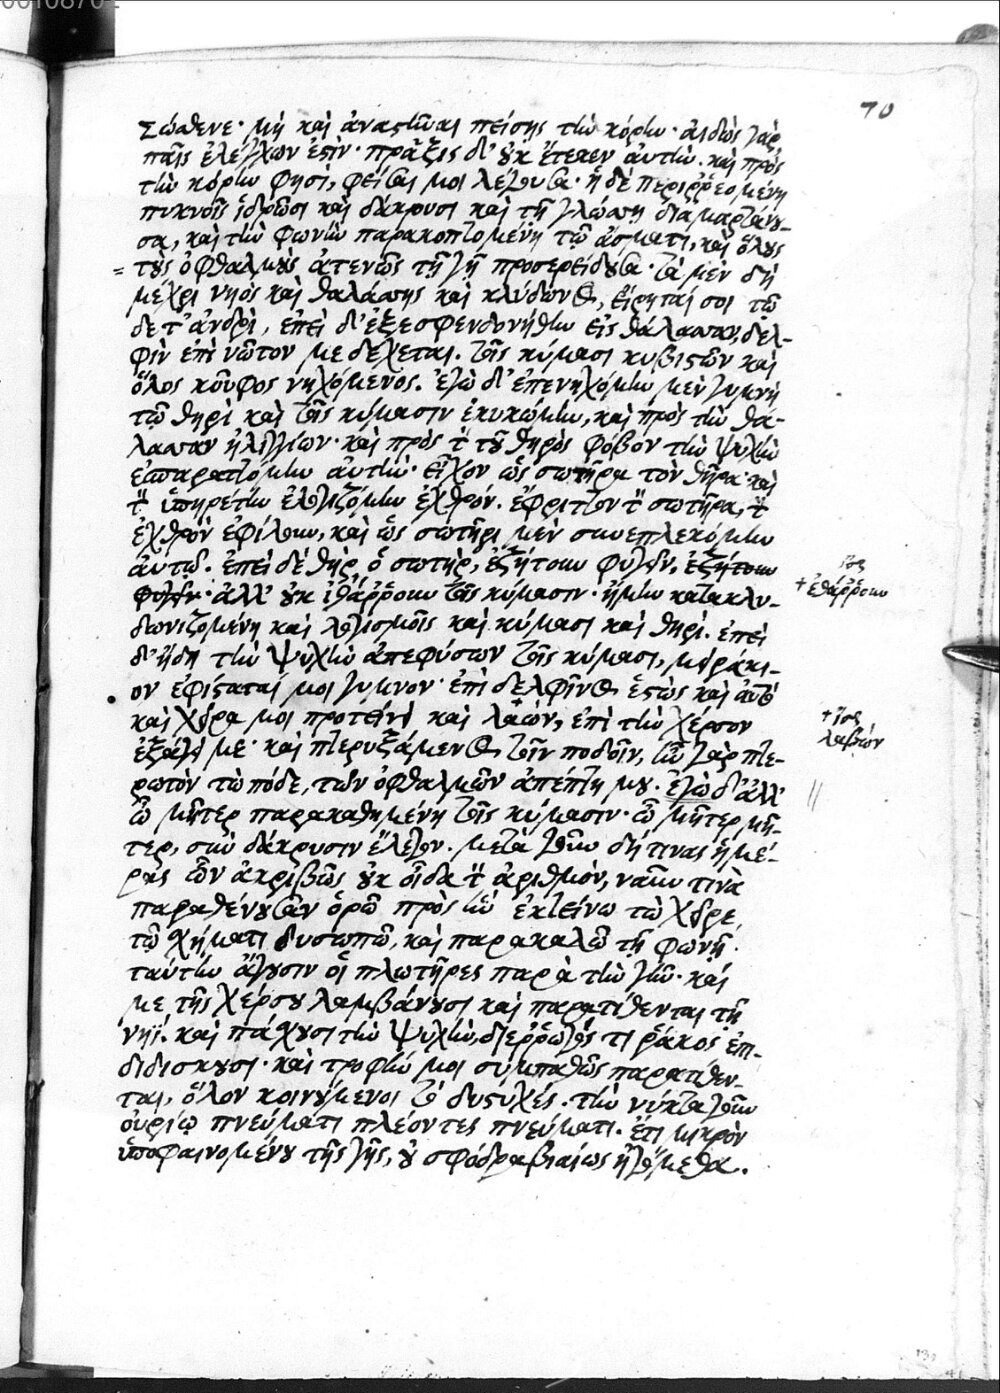 00108704
70
Σώσθενε· μὴ καὶ ἀναστῆναι πείσῃς τὴν κόρην· αἰδὼς γὰρ
παῖς ἐλέγχων ἐστὶν· πρᾶξις δ' οὐκ ἔτεκεν αὐτὴν. καὶ πρὸς
τὴν κόρην φησὶ, φεῖσαι μοι λέγουσα· ἡ δὲ περιρρεομένη
πυκνοῖς ἱδρῶσι καὶ δάκρυσι καὶ τῇ γλώσσῃ διαμαρτάνου-
σα, καὶ τὴν φωνὴν παρακοπτομένη τῷ ᾄσματι, καὶ ὅλους
τοὺς ὀφθαλμοὺς ἀτενῶς τῇ γῇ προσερείδουσα· τὰ μὲν δὴ
μέχρι νηὸς καὶ θαλάσσης καὶ κλύδωνος, εἴρηταί σοι τῷ
δε τ' ἀνδρὶ, ἐπεὶ δ' ἐξεσφενδονήθην εἰς θάλασσαν, δελ-
φὶν ἐπὶ νῶτον με δέχεται. τοῖς κύμασι κυβιστῶν καὶ
ὅλος κοῦφος νηχόμενος. ἐγὼ δ' ἐπενηχόμην μὲν γυμνὴ
τῷ θηρὶ καὶ τοῖς κύμασιν ἐκυκώμην, καὶ πρὸς τὴν θά-
λασσαν ἠλιγγίων· καὶ πρὸς τὸν τοῦ θηρὸς φόβον τὴν ψυχὴν
ἐσπαραττόμην αὐτὴν· εἶχον ὡς σωτῆρα τὸν θῆρα καὶ
τὸν ὑπηρέτην ἐλογιζόμην ἐχθρόν. ἔφριττον τὸν σωτῆρα, τὸν
ἐχθρὸν ἐφίλουν, καὶ ὡς σωτῆρι μὲν συνεπλεκόμην
αὐτῷ. ἐπεὶ δὲ θὴρ ὁ σωτὴρ, ἐζήτουν φυγεῖν, ἐζήτουν
φυγεῖν· ἀλλ' οὐκ ἐθάρρουν τοῖς κύμασιν· ἤμην κατακλυ-
δωνιζομένη καὶ λογισμοῖς καὶ κύμασι καὶ θηρί. ἐπεὶ
δ' ἤδη τὴν ψυχὴν ἀπεφύσων τοῖς κύμασι, μειράκι-
ον ἐφίσταταί μοι γυμνον· ἐπὶ δελφῖνος ἑστὼς καὶ αὐτὸ
καὶ χεῖρα μοι προτείνει καὶ λαὼν, ἐπὶ τὴν χέρσον
ἐξάγει με· καὶ πτερυξάμενος τοῖν ποδοῖν, ἦν γὰρ πτε-
ρωτὸν τὼ πόδε, τῶν ὀφθαλμῶν ἀπέπτη μου. ἐγὼ δ' ἀλλ'
ὦ μῆτερ παρακαθημένη τοῖς κύμασιν· ὦ μῆτερ μῆ-
τερ, σὺν δάκρυσιν ἔλεγον. μετὰ γοῦν δή τινας ἡμέ-
ρας ὧν ἀκριβῶς οὐκ οἶδα τὸν ἀριθμὸν, ναῦν τινὰ
παραθέουσαν ὁρῶ πρὸς ἣν ἐκτείνω τὼ χεῖρε,
τῷ σχήματι δυσωπῶ, καὶ παρακαλῶ τῇ φωνῇ.
ταύτην ἄγουσιν οἱ πλωτῆρες παρὰ τὴν γῆν· καί
με τῆς χέρσου λαμβάνουσι καὶ παρατίθενται τῇ
νηΐ. καὶ πάσχουσι τὴν ψυχὴν, διερρωγός τι ῥάκος ἐπ-
διδισκουσι· καὶ τροφήν μοι συμπαθῶς παρατίθεν-
ται, ὅλον κοινούμενοι τὸ δυστυχές. τὴν νύκτα γοῦν
οὐρίῳ πνεύματι πλέοντες πνεύματι. ἔτι μικρὸν
ὑποφαινομένου τῆς γῆς, οὐ σφόδρα βιαίως ἠγόμεθα.
ἴσως
+ ἐθάρρουν
+ ἴσως
λαβὼν